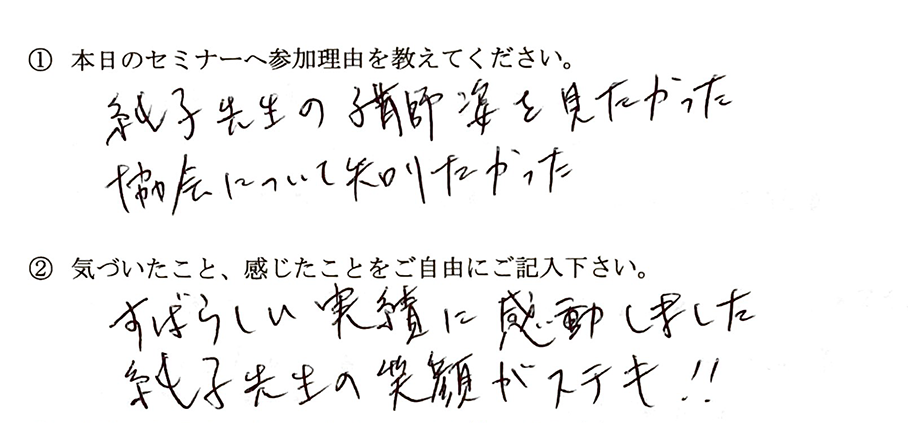 ① 本日のセミナーへ参加理由を教えてください。
純子先生の講師姿を見たかった
協会について知りたかった
② 気づいたこと、感じたことをご自由にご記入下さい。
すばらしい実績に感動しました
純子先生の笑顔がステキ!!